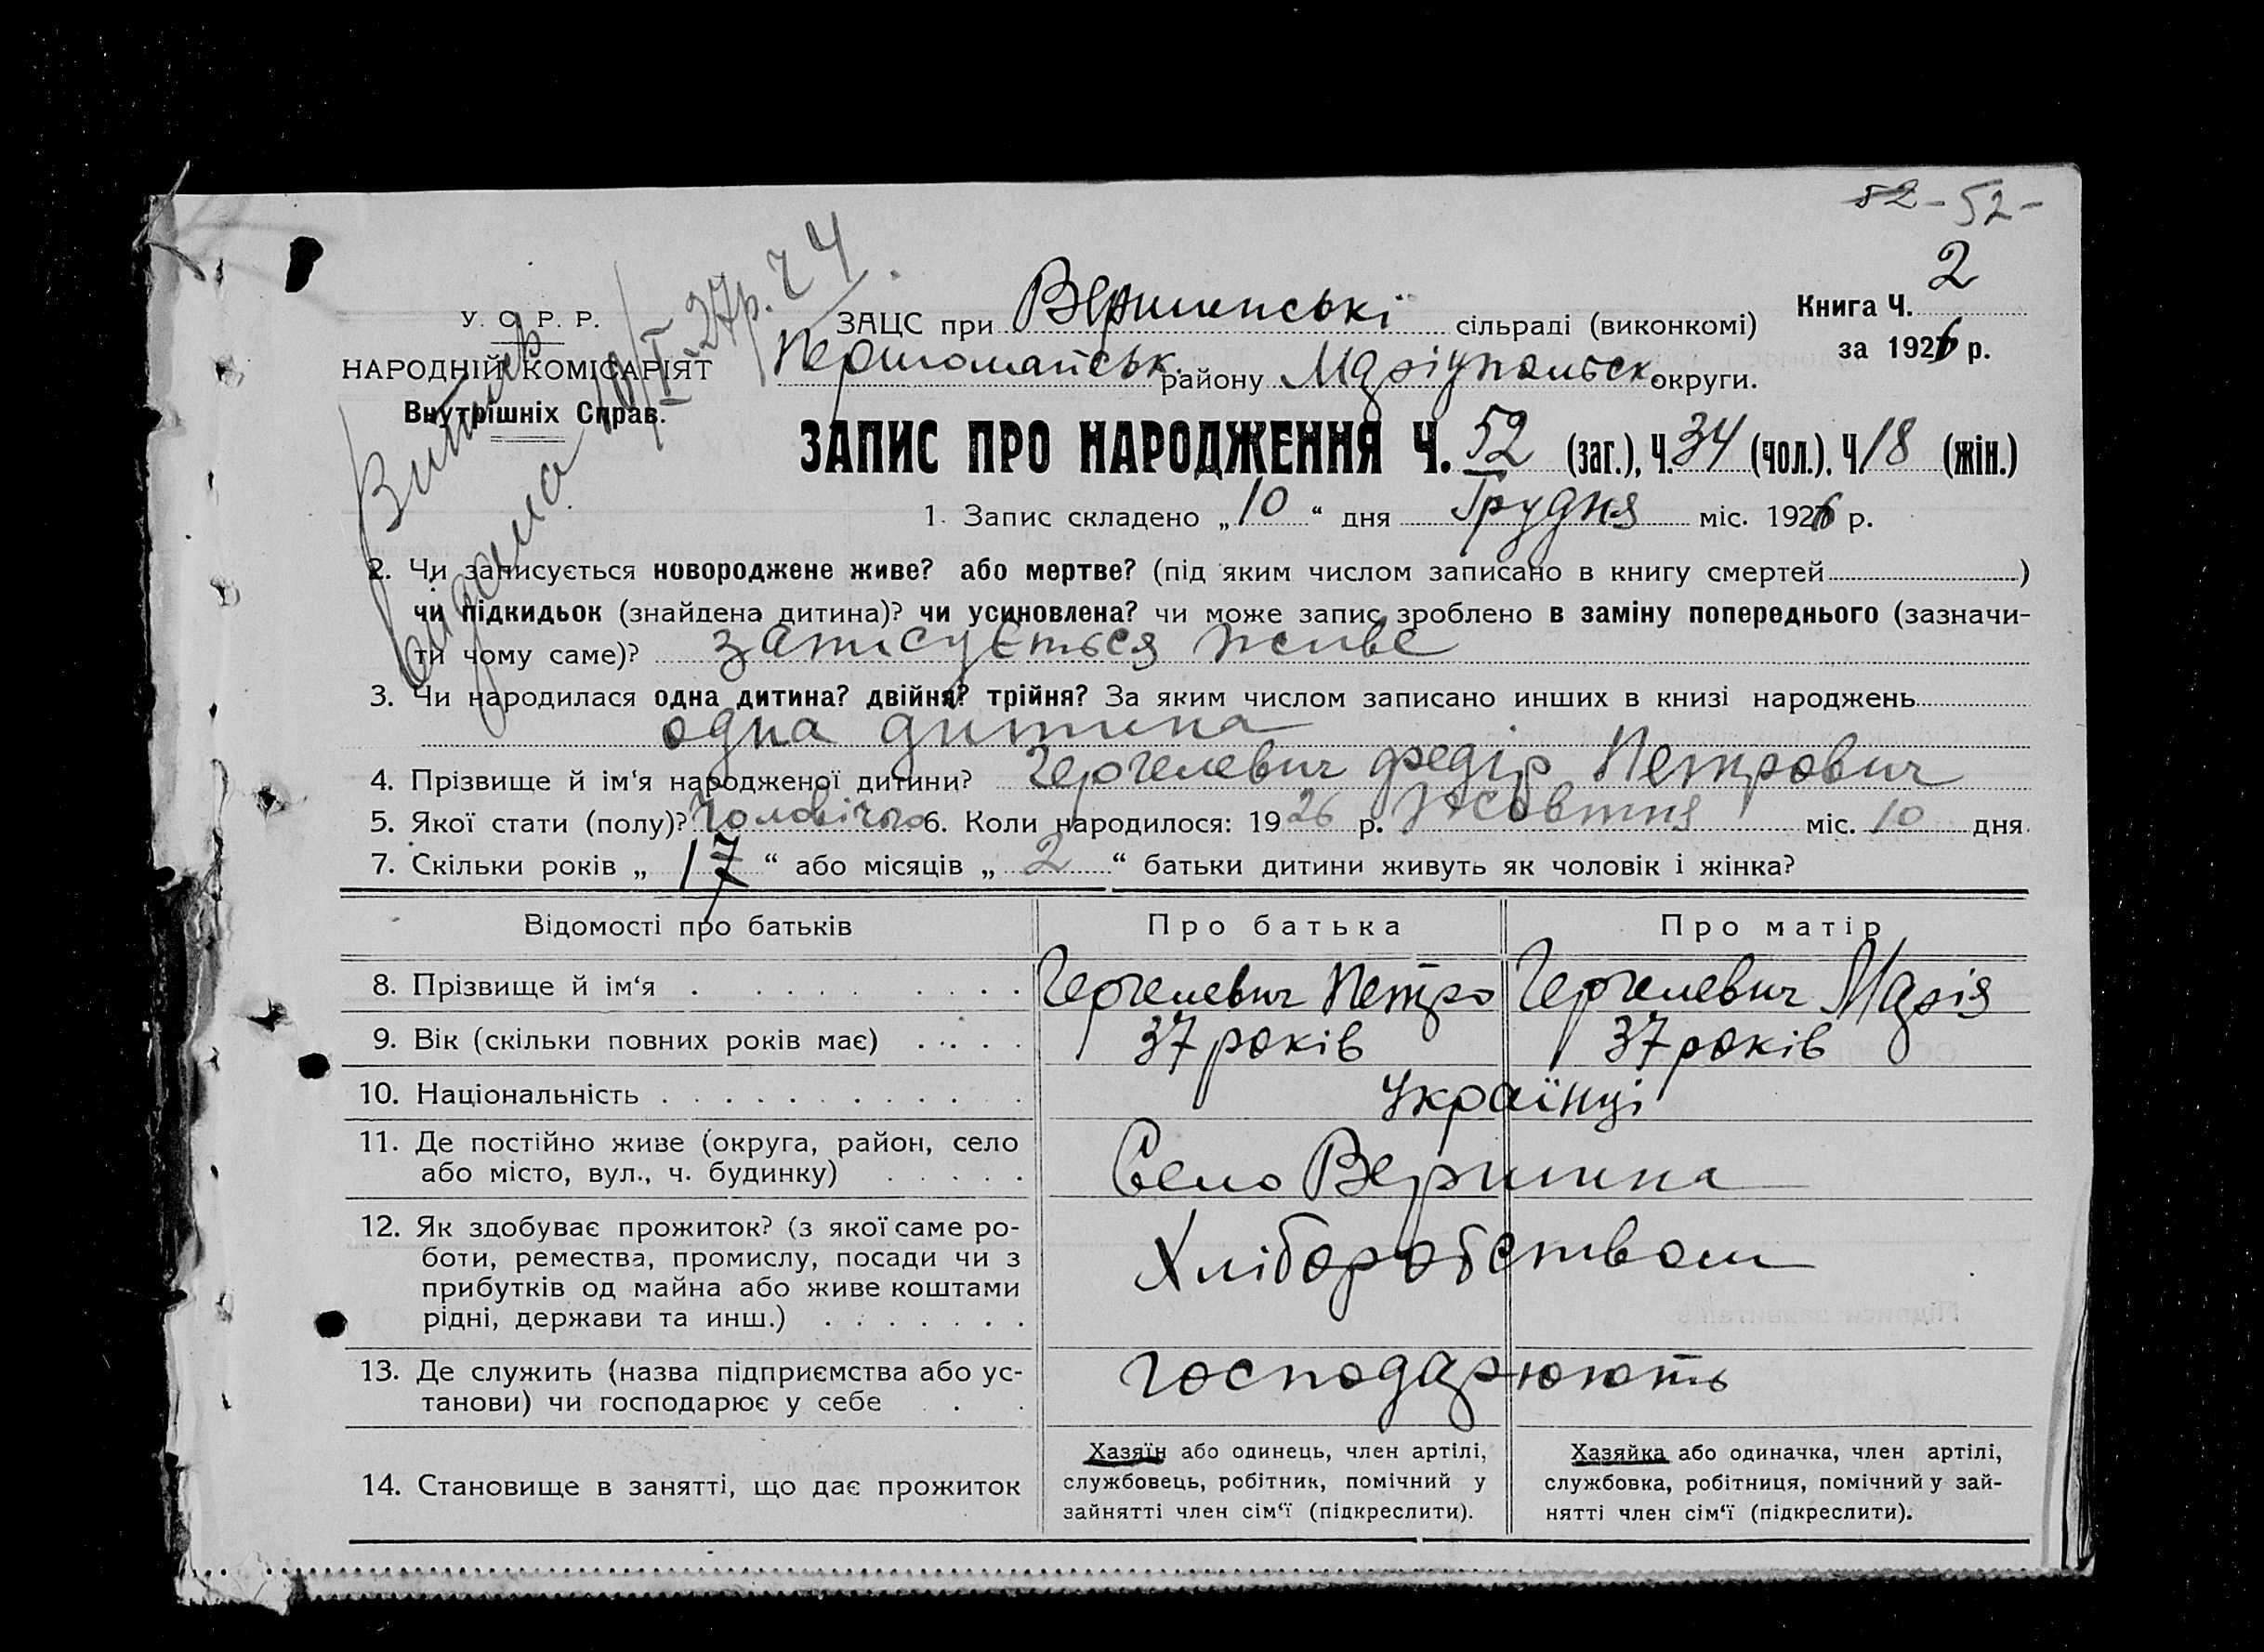 52 - 52 -
Книга Ч. 2
за 1926 р.
У. С. Р. Р.
НАРОДНІЙ КОМІСАРІЯТ
Внутрішніх Справ.
Витяг
видано 10/I-27р.
ЗАЦС при Вершинські сільраді (виконкомі)
Першомайськ. району Маріупольськ. округи.
ЗАПИС ПРО НАРОДЖЕННЯ Ч. 52 (заг.), Ч. 34 (чол.), Ч. 18 (жін.)
1. Запис складено „10“ дня Грудня міс. 1926 р.
2. Чи записується новороджене живе? або мертве? (під яким числом записано в книгу смертей)
чи підкидьок (знайдена дитина)? чи усиновлена? чи може запис зроблено в заміну попереднього (зазначи-
ти чому саме)? записується живе
3. Чи народилася одна дитина? двійня? трійня? За яким числом записано инших в книзі народжень
одна дитина
4. Прізвище й ім‘я народженої дитини? Гергелевич Федір Петрович
5. Якої стати (полу)? Чоловічого 6. Коли народилося: 1926 р. Жовтня міс. 10 дня
7. Скільки років „17“ або місяців „2“ батьки дитини живуть як чоловік і жінка?
Відомості про батьків Про батька Про матір
8. Прізвище й ім‘я Гергелевич Петро Гергелевич Марія
9. Вік (скільки повних років має) 37 років 37 років
10. Національність Українці
11. Де постійно живе (округа, район, село
або місто, вул., ч. будинку) Село Вершина
12. Як здобуває прожиток? (з якої саме ро-
боти, ремества, промислу, посади чи з
прибутків од майна або живе коштами
рідні, держави та инш.) Хліборобством
13. Де служить (назва підприємства або ус-
танови) чи господарює у себе господарюють
14. Становище в занятті, що дає прожиток
Хазяїн або одинець, член артілі,
службовець, робітник, помічний у
зайнятті член сім‘ї (підкреслити).
Хазяйка або одиначка, член артілі,
службовка, робітниця, помічний у зай-
нятті член сім‘ї (підкреслити).